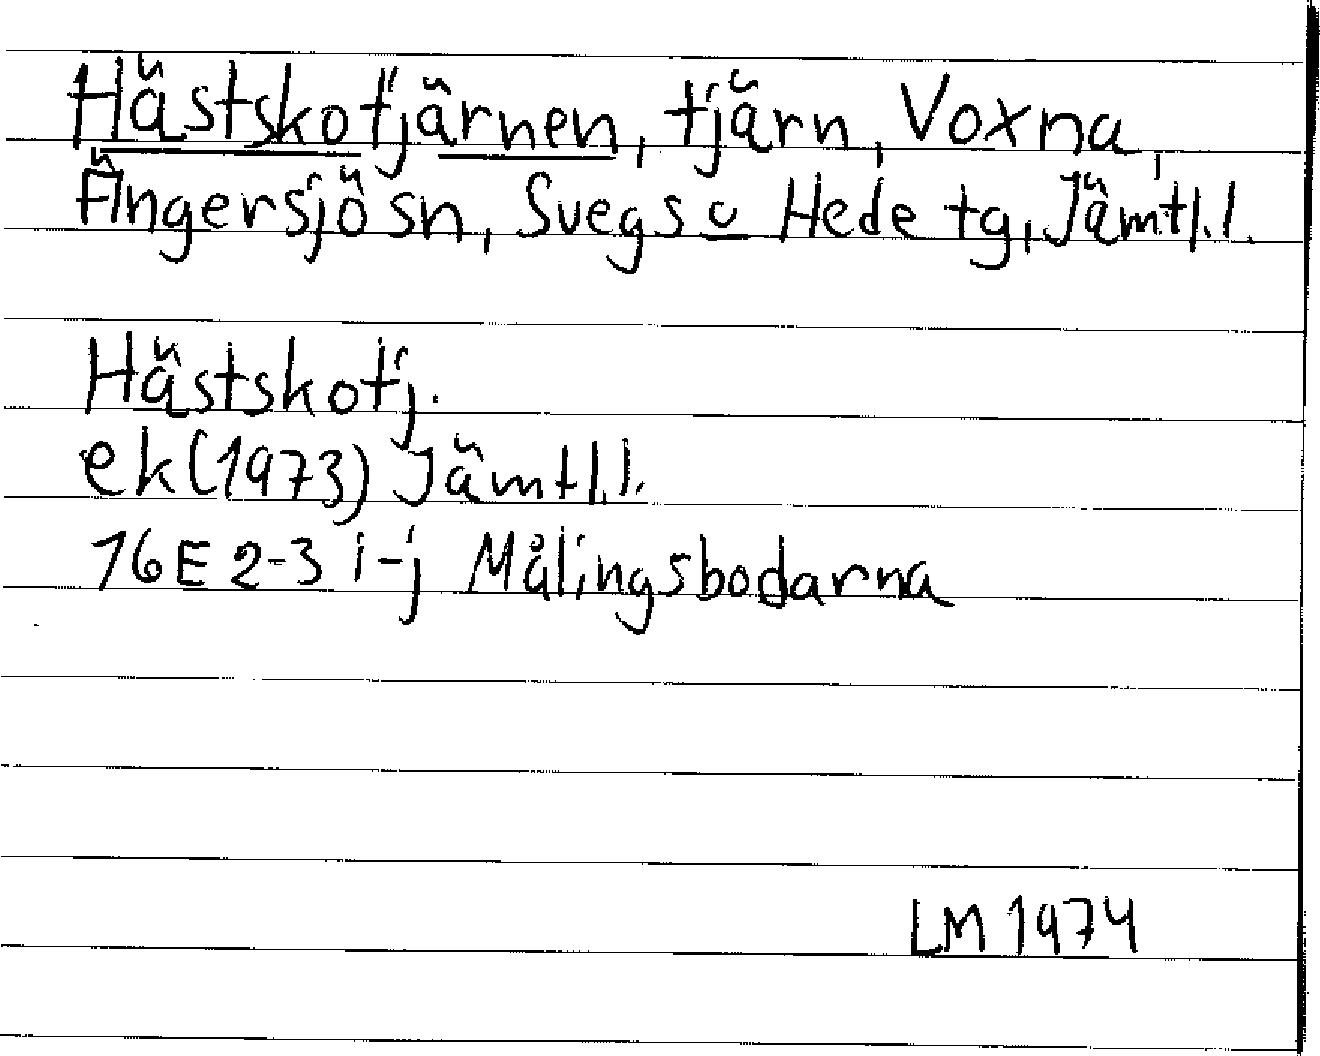 Hästskotjärnen, tjärn, Voxna,
Ängersjö sn, Svegs o Hede tg, Jämtl.l.
Hästskotj.
ek(1973) Jämtl.l.
16E 2-3 i-j Målingsbodarna
LM 1974